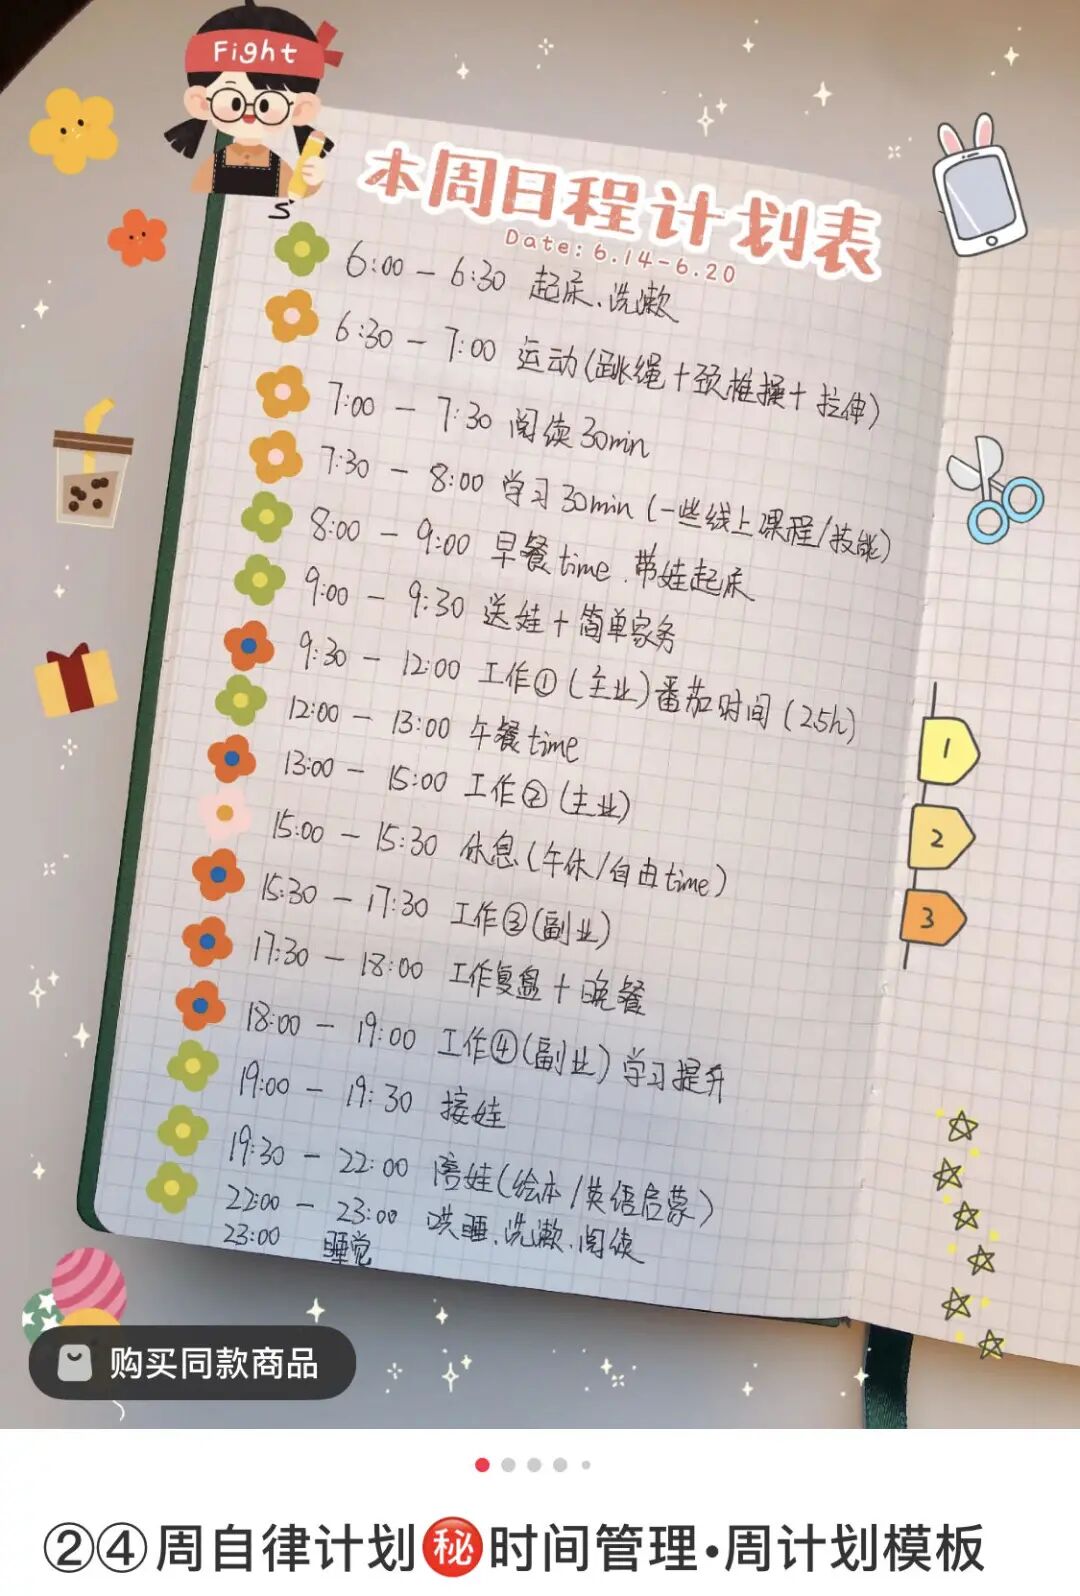 Fight
本周日程计划表
Date: 6.14-6.20
6:00 - 6:30 起床、洗漱
6:30 - 7:00 运动(跳绳+颈椎操+拉伸)
7:00 - 7:30 阅读30min
7:30 - 8:00 学习30min(一些线上课程/技能)
8:00 - 9:00 早餐time、带娃起床
9:00 - 9:30 送娃+简单家务
9:30 - 12:00 工作①(主业)番茄时间(2.5h)
12:00 - 13:00 午餐time
13:00 - 15:00 工作②(主业)
15:00 - 15:30 休息(午休/自由time)
15:30 - 17:30 工作③(副业)
17:30 - 18:00 工作复盘+晚餐
18:00 - 19:00 工作④(副业)学习提升
19:00 - 19:30 接娃
19:30 - 22:00 陪娃(绘本/英语启蒙)
22:00 - 23:00 哄睡、洗漱、阅读
23:00 睡觉
1
2
3
购买同款商品
②④周自律计划㊙️时间管理•周计划模板